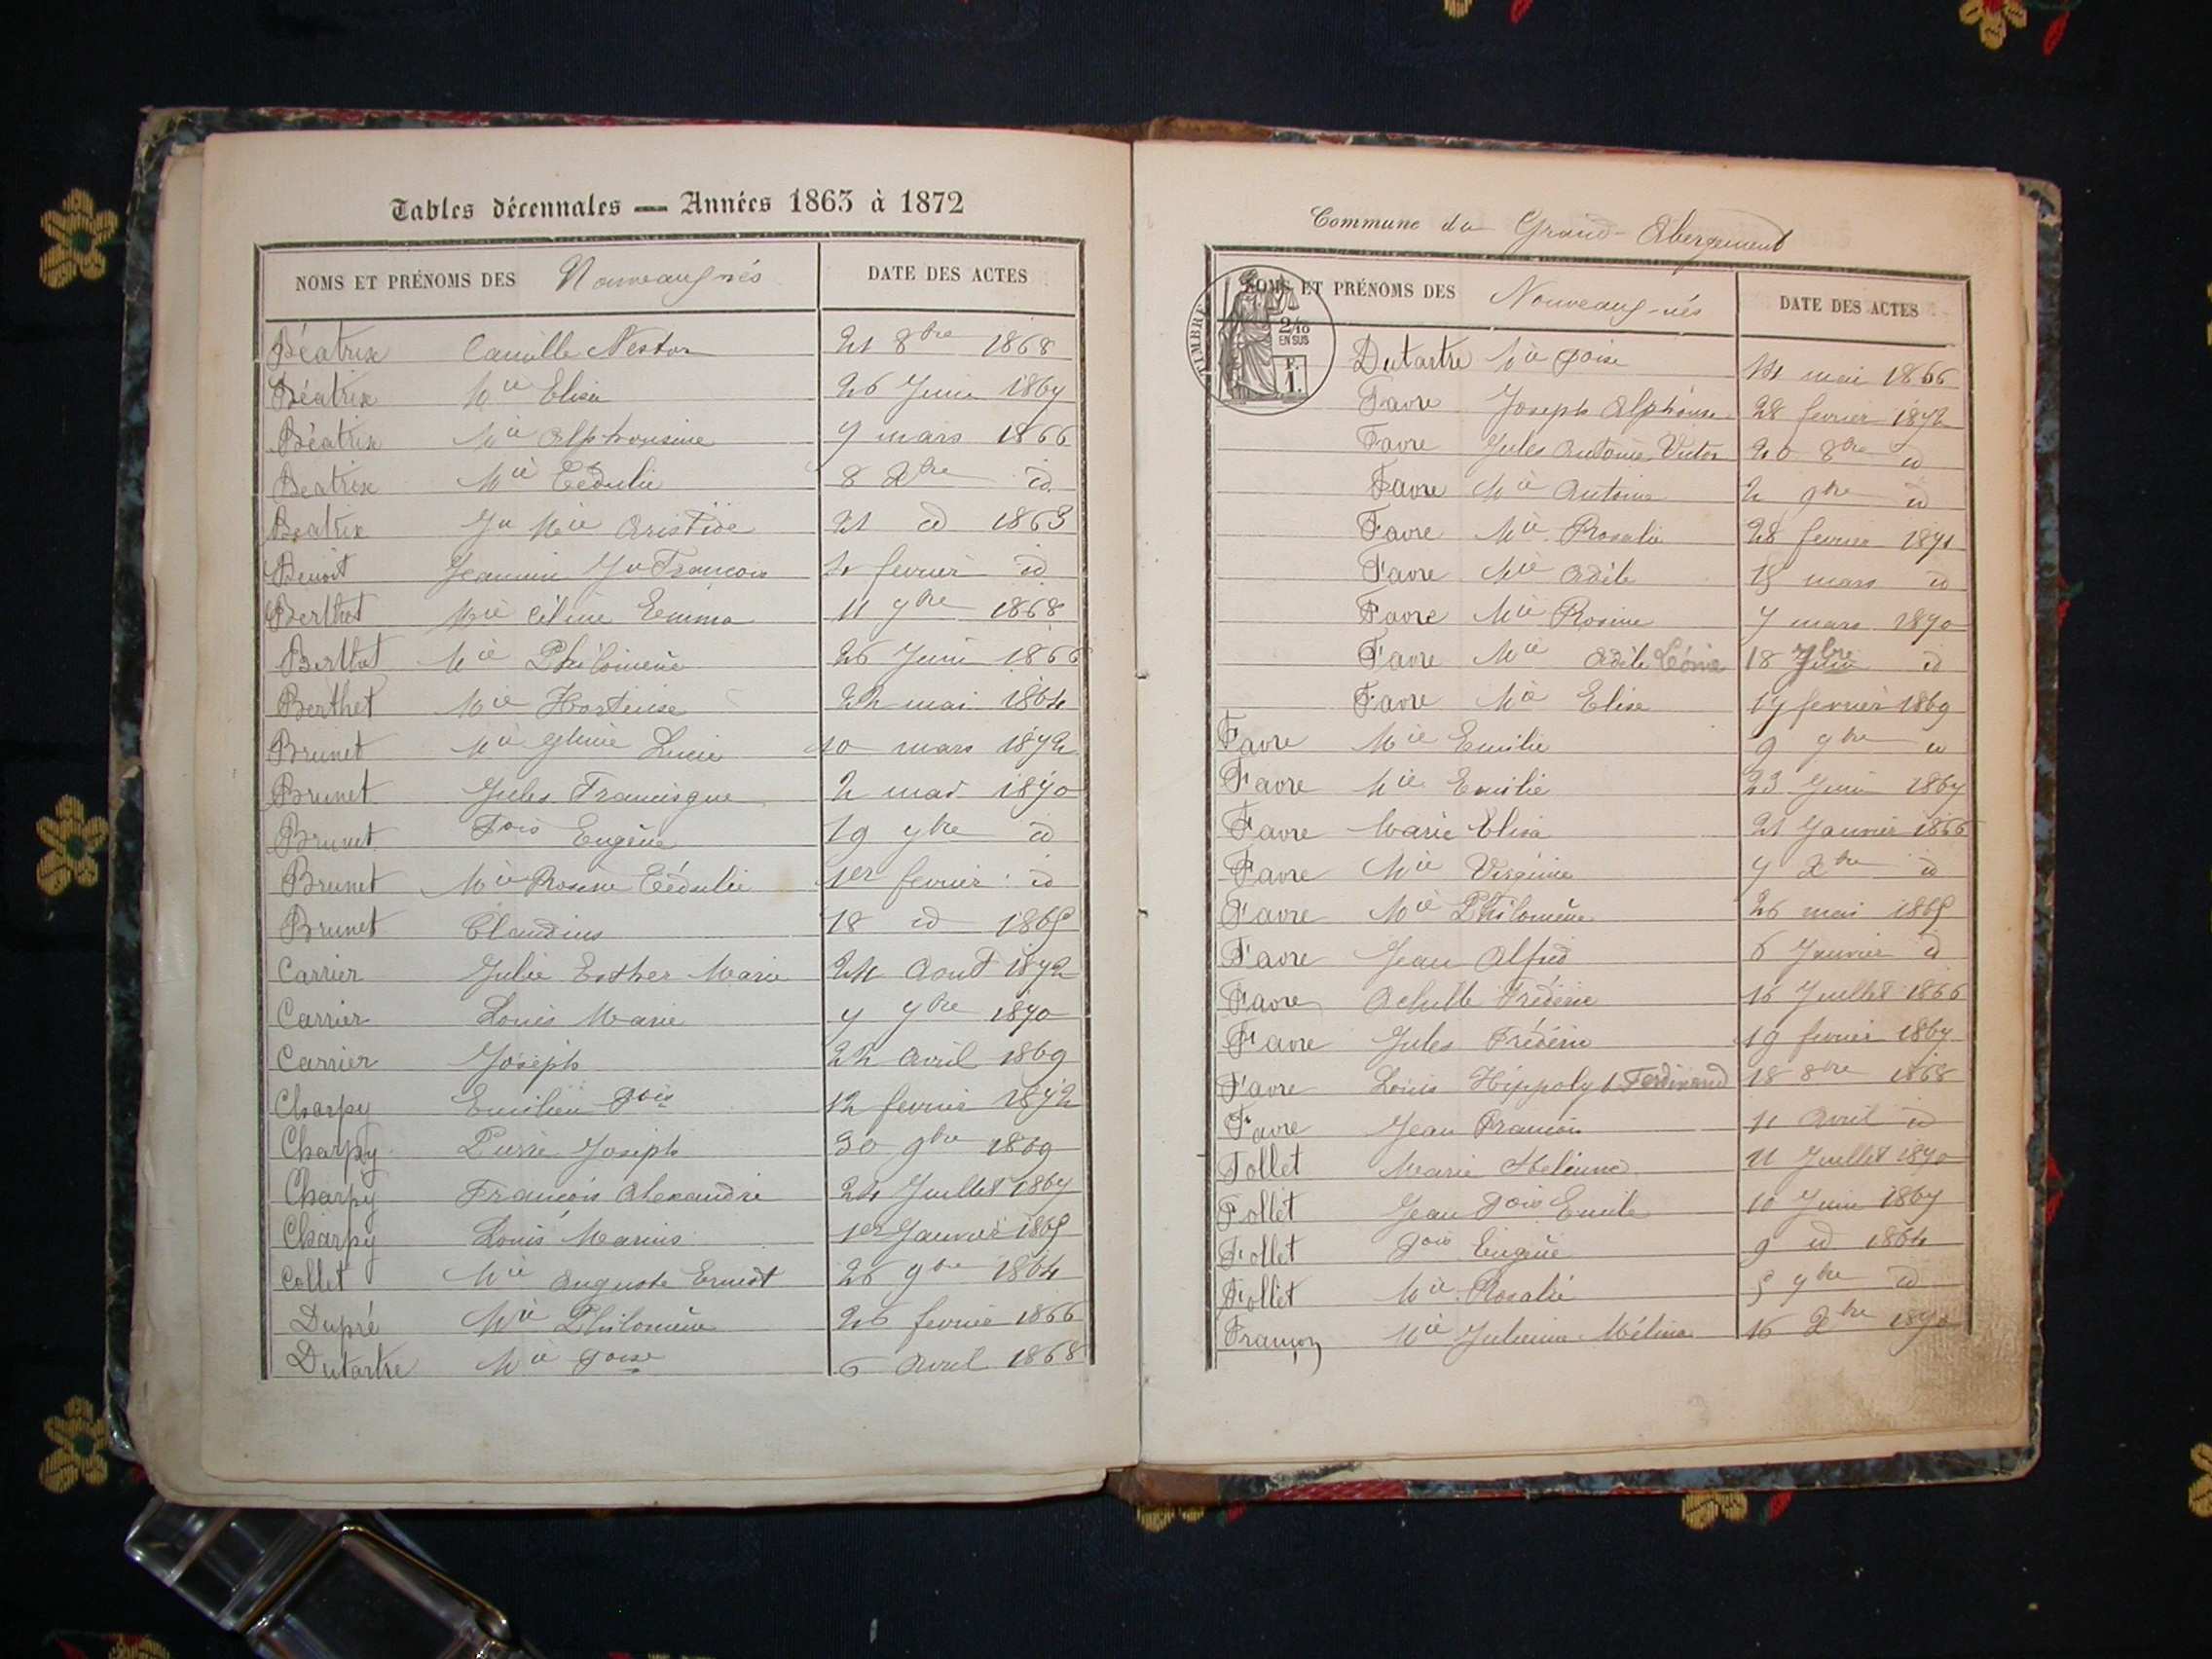 Tables décennales — Années 1863 à 1872
NOMS ET PRÉNOMS DES Nouveaux-nés DATE DES ACTES
Béatrix Camille Nestor 21 8bre 1868
Béatrix Mie Elisa 26 Juin 1867
Béatrix Mie Alphonsine 7 mars 1866
Béatrix Mie Cédulie 8 Xbre id
Béatrix Jh Mie Aristide 21 id 1863
Benoit Jeannin Jh François février id
Berthet Mie Céline Emma 11 9bre 1868
Berthet Mie Philomène 26 Juin 1866
Berthet Mie Hortense 22 mai 1864
Brunet Mie Lucie 10 mars 1872
Brunet Jules Francisque 2 mai 1870
Brunet Fois Eugène 19 id
Brunet Mie Rosine Cédulie 1er février id
Brunet Claudius 18 id 1865
Carrier Julie Esther Marie 24 Aout 1872
Carrier Louis Marie 7 1870
Carrier Joseph 22 Avril 1869
Charpy Emilien Fois 12 février 1872
Charpy Pierre Joseph 30 9bre 1869
Charpy François Alexandre 24 Juillet 1867
Charpy Louis Marius 1er Janvier 1865
Collet Mie Auguste Ernest 26 9bre 1864
Dupré Mie Philomène 26 février 1866
Dutartre Mie Foise 6 Avril 1868
Commune du Grand-Abergement
NOMS ET PRÉNOMS DES Nouveaux-nés DATE DES ACTES
TIMBRE
2/10
EN SUS
F.
1.
Dutartre Mie Foise mai 1866
Favre Joseph Alphonse 28 février 1872
Favre Jules Antoine Victor 20 8bre id
Favre Mie Antoine 2 9bre id
Favre Mie Rosalie 28 février 1871
Favre Mie Adèle 18 mars id
Favre Mie Rosine 7 mars 1870
Favre Mie Adèle Léonie 18 7bre id
Favre Mie Elise 17 février 1869
Favre Mie Emilie 9 id
Favre Mie Emilie 23 Juin 1867
Favre Marie Elisa 21 Janvier 1866
Favre Mie Virginie 7 Xbre id
Favre Mie Philomène 26 mai 1865
Favre Jean Alfred 6 Janvier id
Favre Achille Frédéric 16 Juillet 1866
Favre Jules Frédéric 19 février 1867
Favre Louis Hippolyt Ferdinand 18 8bre 1868
Favre Jean François 11 Avril id
Follet Marie Juillet 1870
Follet Jean Fois Emile 10 Juin 1867
Follet Fois Eugène 9 id 1864
Follet Mie Rosalie 5 id
Françon Mie Julienne Mélina 16 Xbre